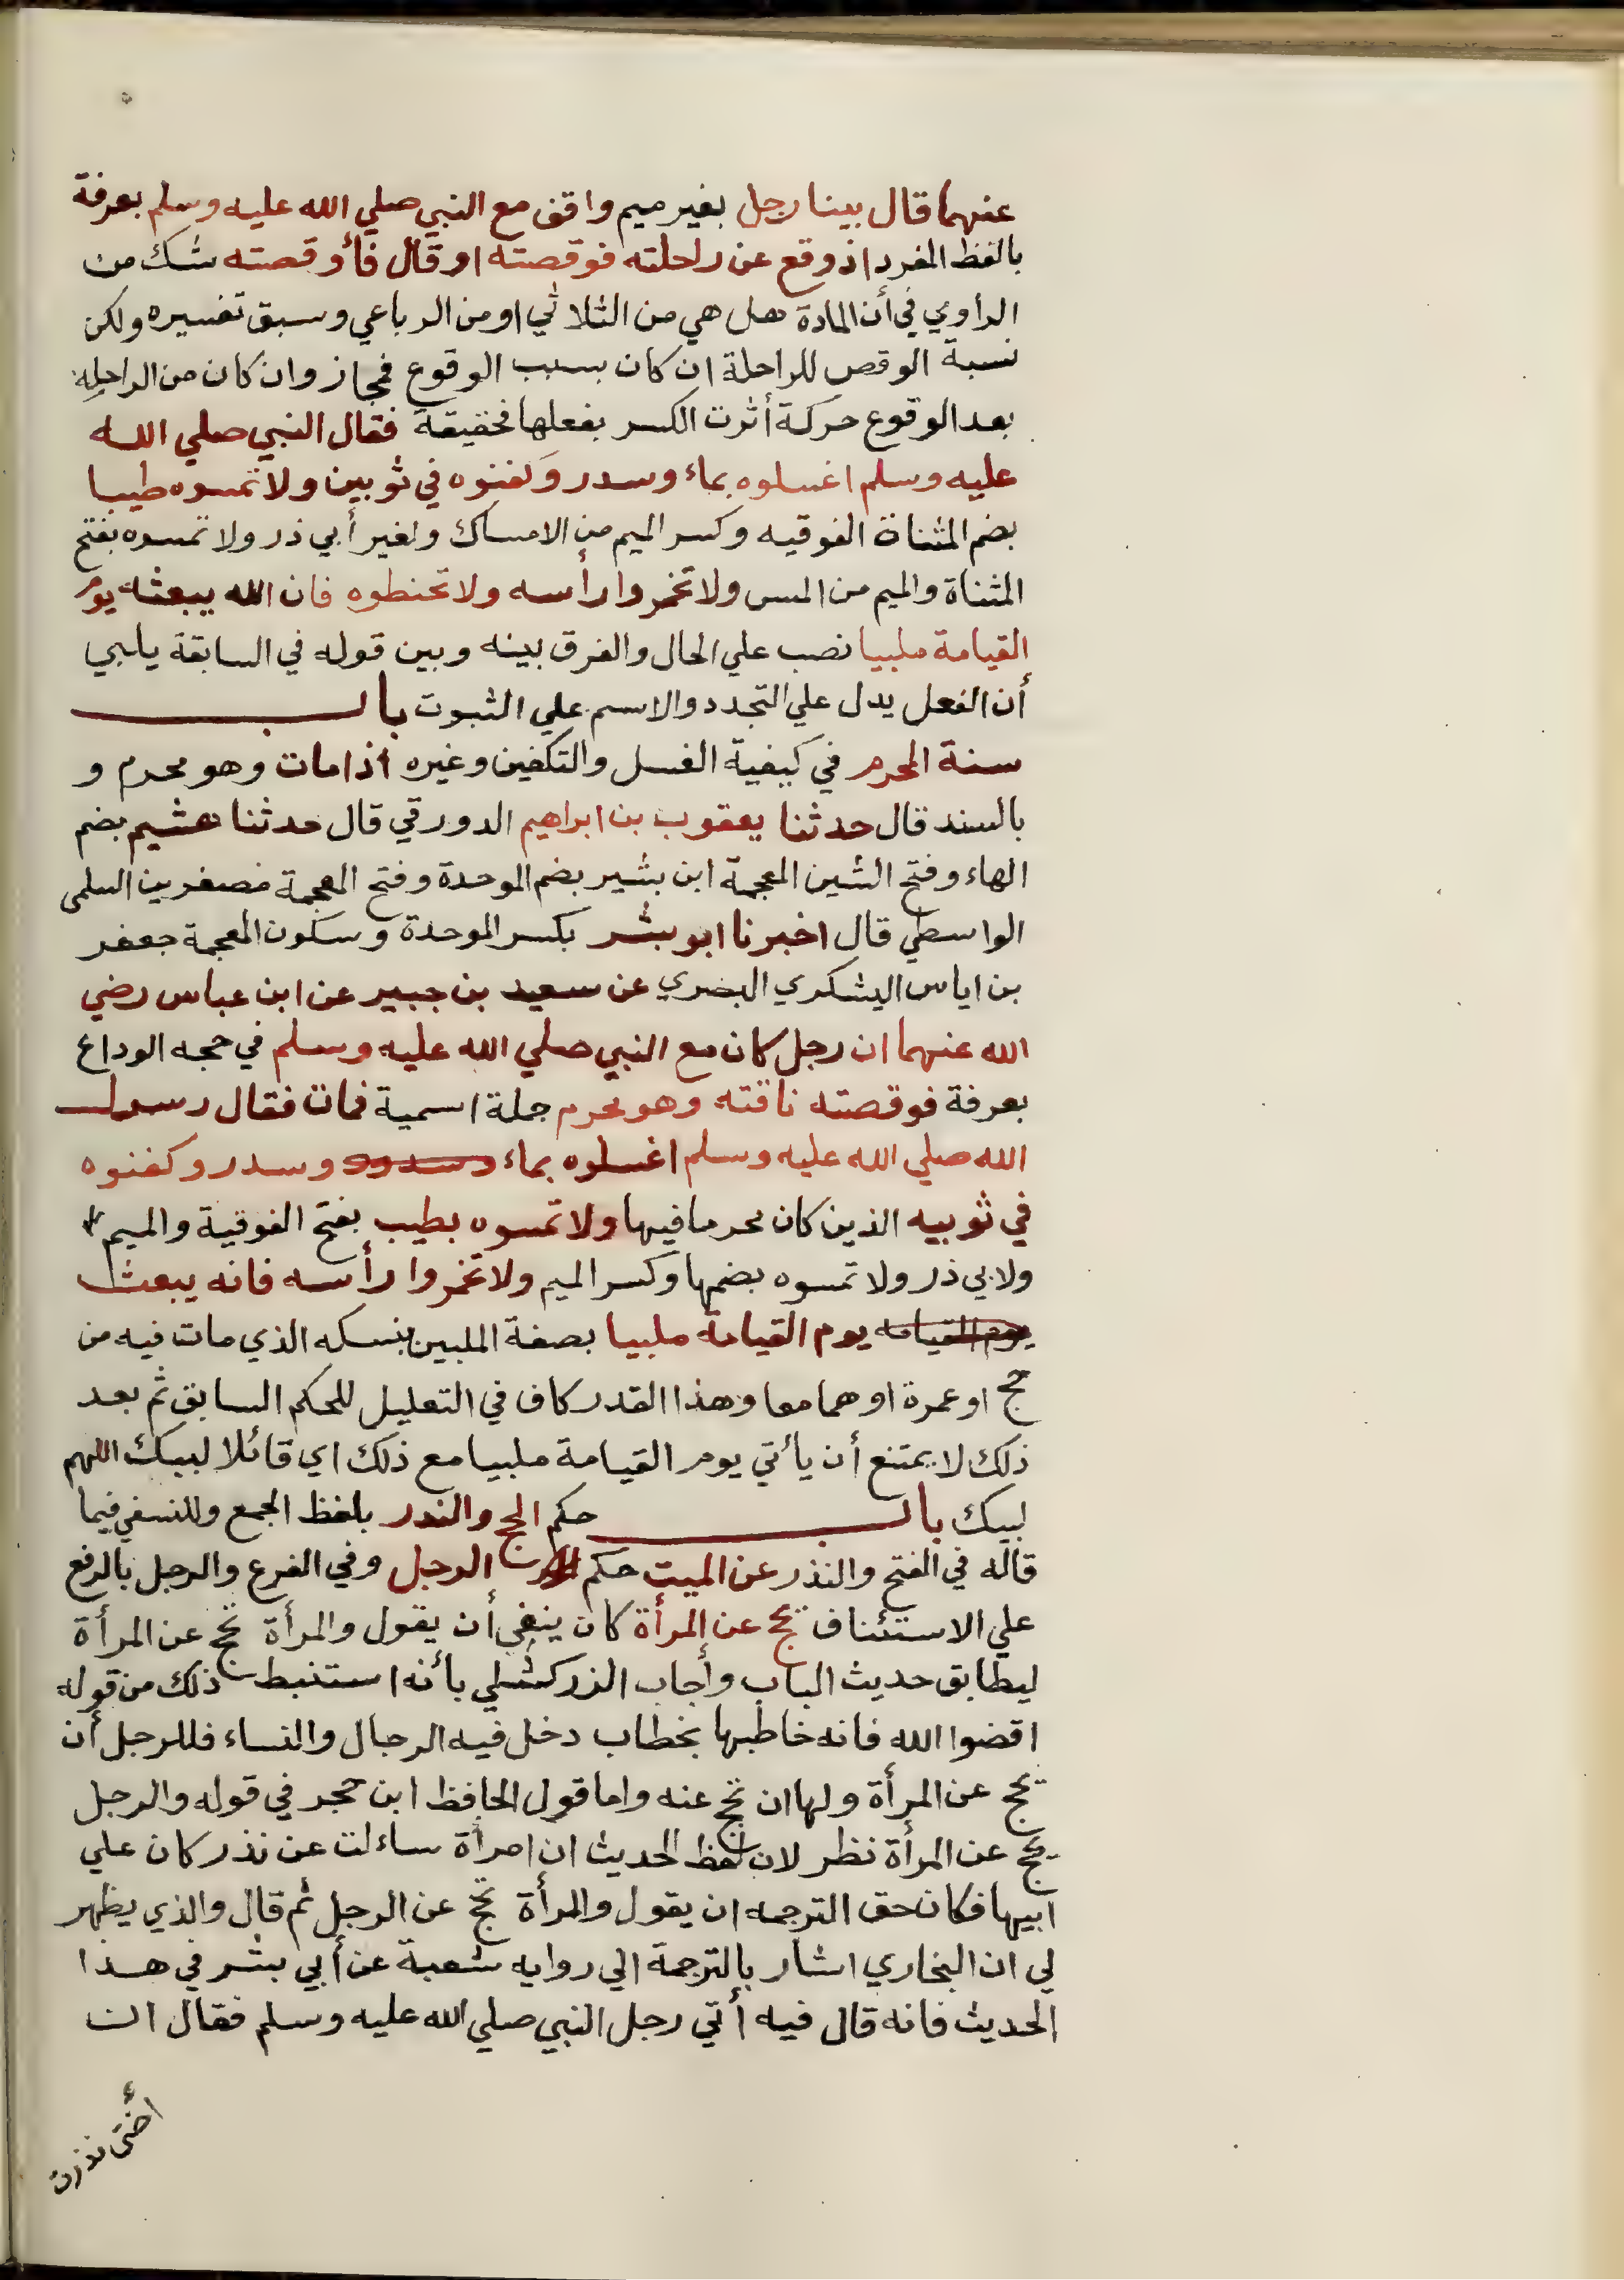 عنهما قال بينا رجل بغير ميم واقف مع النبي صلي الله عليه وسلم بعرفة
بالفظ المفرد اذ وقع عن راحلته فوقصته او قال فأوقصته شك من
الراوي في أن المادة هل هي من الثلاثي او من الرباعي وسبق تفسيره ولكن
نسبة الوقص للراحلة ان كان بسبب الوقوع فمجاز وان كان من الراحلة
بعد الوقوع حركة أثرت الكسر بفعلها فحقيقة فقال النبي صلي الله
عليه وسلم اغسلوه بماء وسدر وكفنوه في ثوبين ولا تمسوه طيبا
بضم المثناة الفوقيه وكسر الميم من الامساك ولغير أبي ذر ولا تمسوه بفتح
المثناة والميم من المس ولا تخمروا رأسه ولا تحنطوه فان الله يبعثه يوم
القيامة ملبيا نصب علي الحال والفرق بينه وبين قوله في السابقة يلبي
أن الفعل يدل علي التجدد والاسم علي الثبوت باب
سنة المحرم في كيفية الغسل والتكفين وغيره اذا مات وهو محرم و
بالسند قال حدثنا يعقوب بن ابراهيم الدورقي قال حدثنا هشيم بضم
الهاء وفتح الشين المعجمة ابن بشير بضم الموحدة وفتح المعجمة مصغرين السلمي
الواسطي قال اخبرنا ابو بشر بكسر الموحدة وسكون المعجمة جعفر
بن اياس اليشكري البصري عن سعيد بن جبير عن ابن عباس رضي
الله عنهما ان رجل كان مع النبي صلي الله عليه وسلم في حجه الوداع
بعرفة فوقصته ناقته وهو محرم جملة اسمية فمات فقال رسول
الله صلي الله عليه وسلم اغسلوه بماء وسدر وسدر وكفنوه
في ثوبيه الذين كان محرما فيها ولا تمسوه بطيب بفتح الفوقية والميم
ولابي ذر ولا تمسوه بضمها وكسر الميم ولا تخمروا رأسه فانه يبعث
يوم القيامه يوم القيامة ملبيا بصفة الملبين بنسكه الذي مات فيه من
حج او عمرة او هما معا وهذا القدر كاف في التعليل للحكم السابق ثم بعد
ذلك لا يمتنع أن يأتي يوم القيامة ملبيا مع ذلك اي قائلا لبيك اللهم
لبيك باب حكم الحج والنذر بلفظ الجمع وللنسفي فيما
قاله في الفتح والنذر عن الميت حكم الرجل وفي الفرع والرجل بالرفع
علي الاستئناف يحج عن المرأة كان ينبغي أن يقول والمرأة تحج عن المرأة
ليطابق حديث الباب وأجاب الزركشلي بأنه استنبط ذلك من قوله
اقضوا الله فانه خاطبها بخطاب دخل فيه الرجال والنساء فللرجل أن
يحج عن المرأة ولها ان تحج عنه واما قول الحافظ ابن حجر في قوله والرجل
يحج عن المرأة نظر لان لفظ الحديث ان امرأة ساءلت عن نذر كان علي
ابيها فكان حق الترجمه ان يقول والمرأة تحج عن الرجل ثم قال والذي يظهر
لي ان البخاري اشار بالترجمة الي روايه شعبة عن أبي بشر في هذا
الحديث فانه قال فيه أتي رجل النبي صلي الله عليه وسلم فقال ان
أختى نذرت